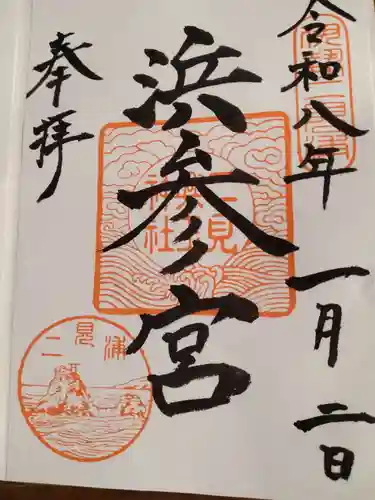 令和八年 一月 二日
浜参宮
奉拝
二見浦